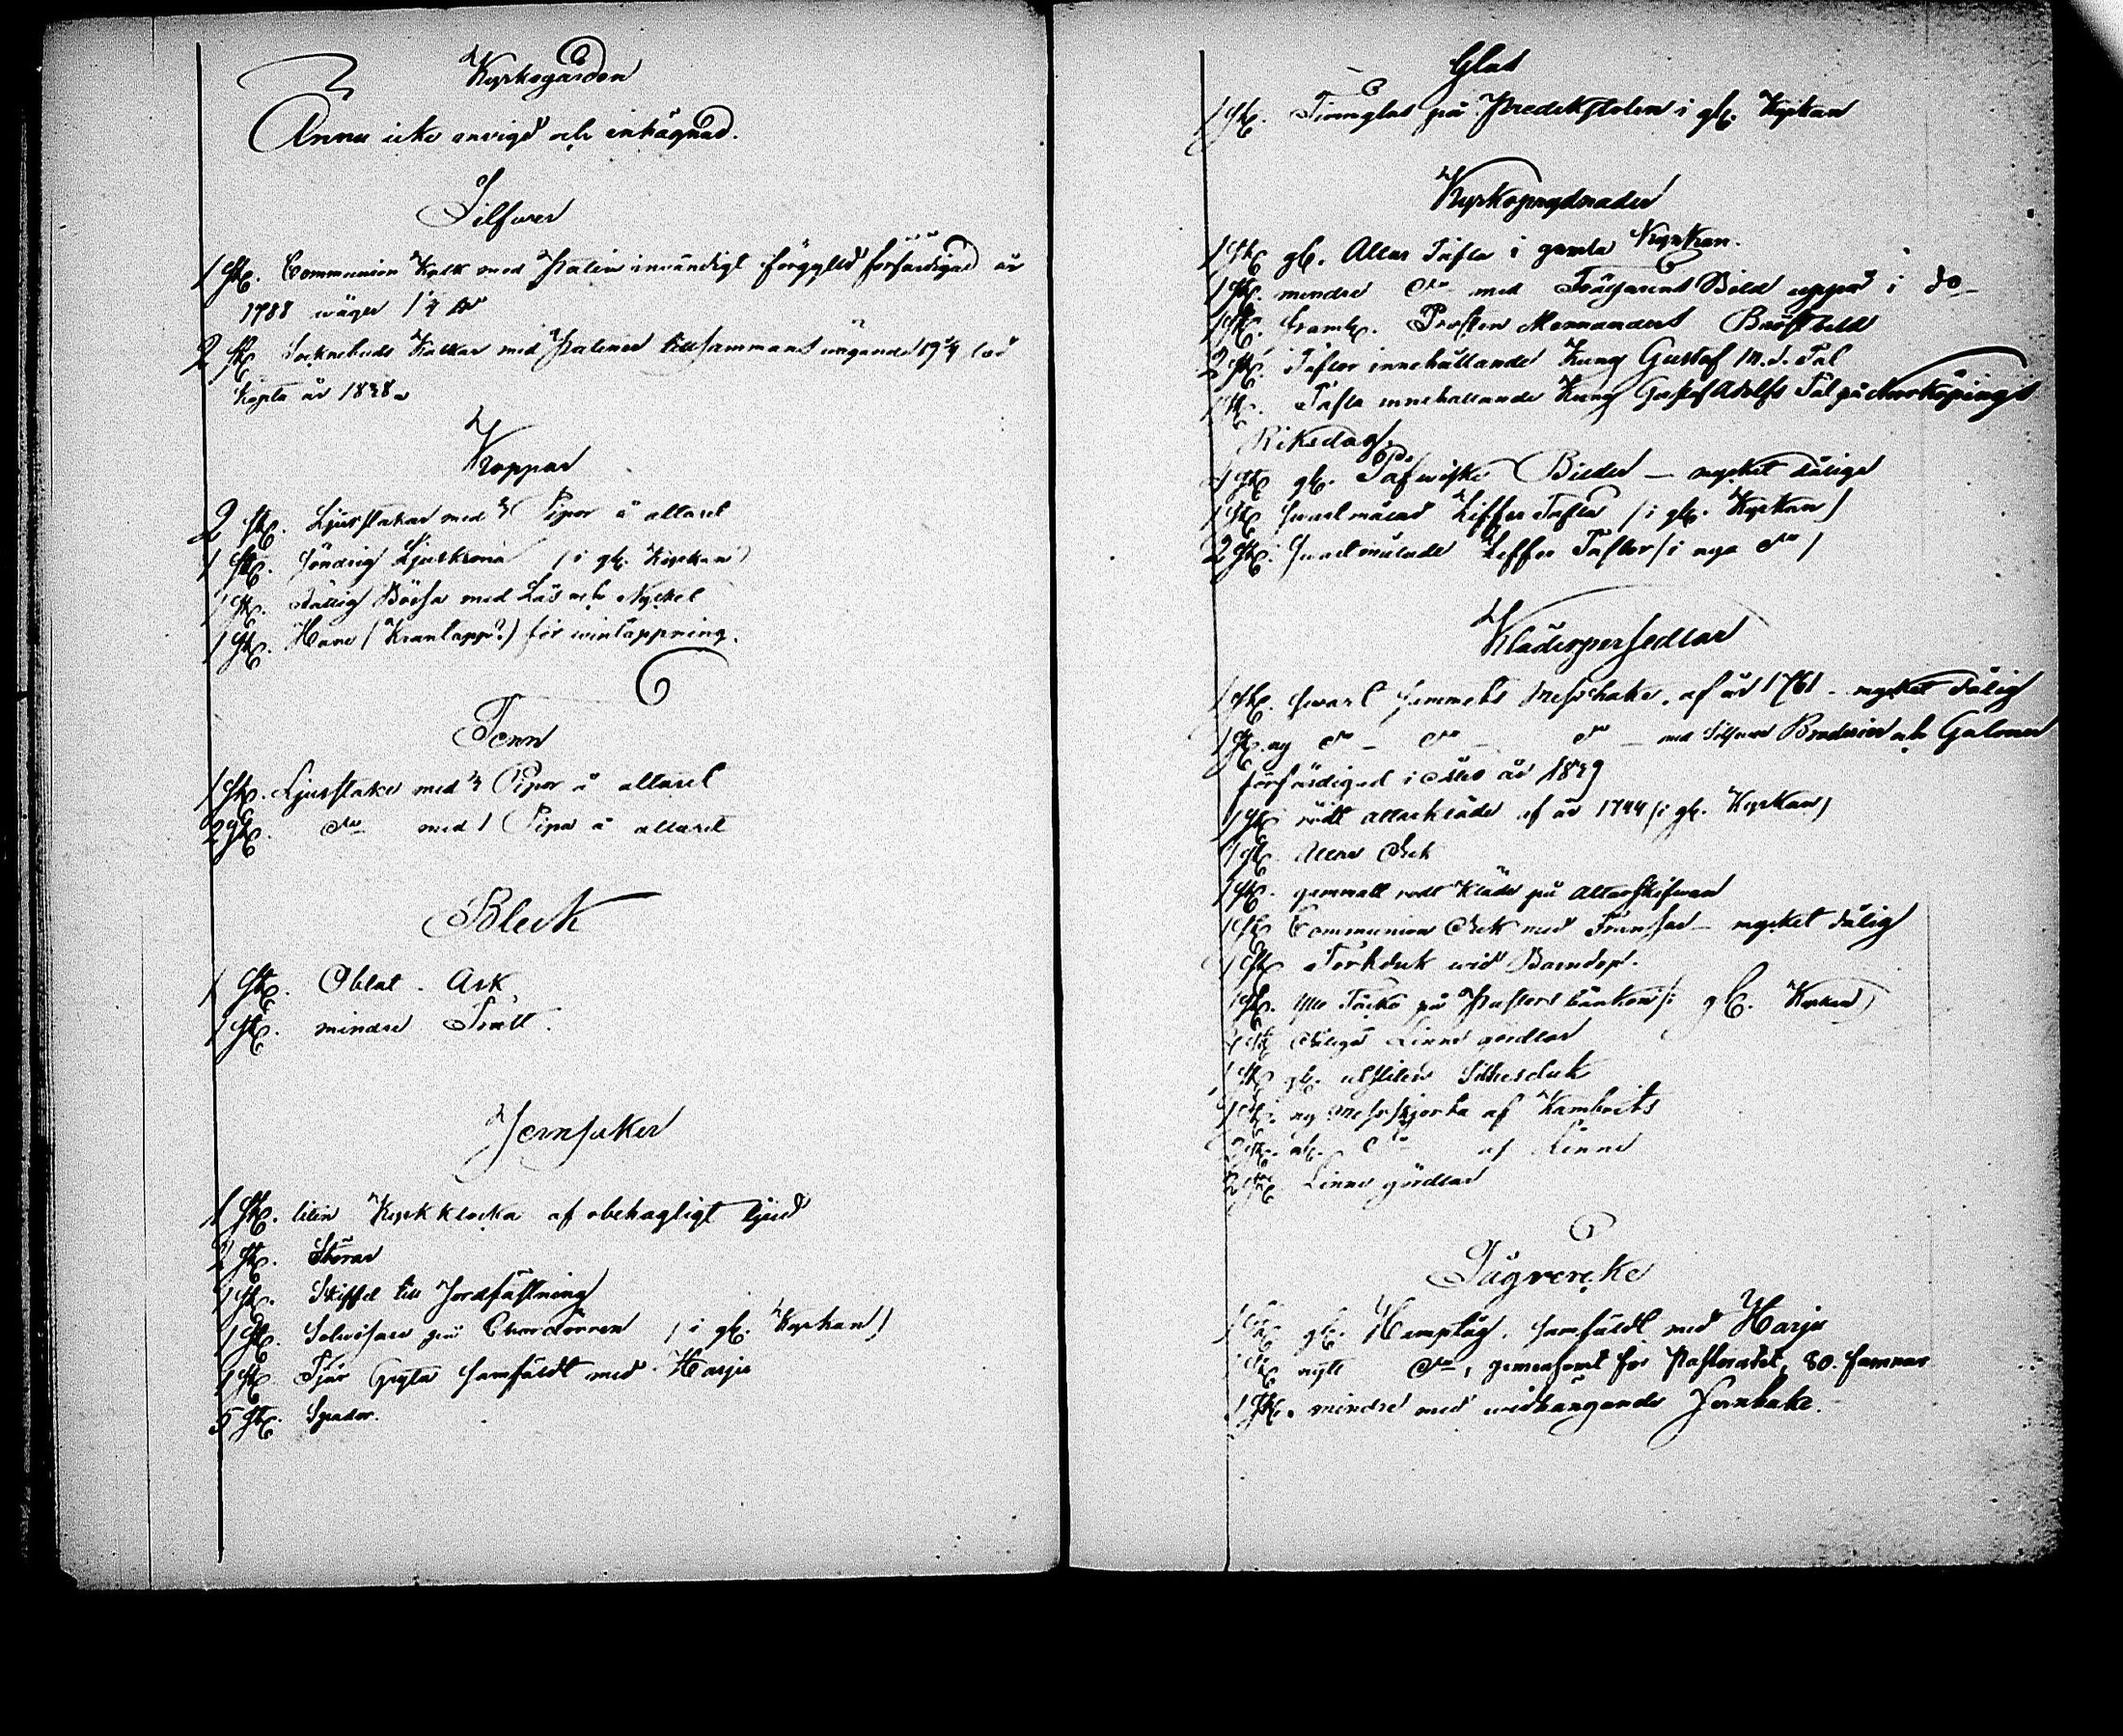 Kyrkogården
Ännu icke invigd och inhägnad.
Silfver
1 stk. Communion Kalk med Paten invändigt förgylld förfärdigad år
1788 wäger
2 stk Sockenbuds Kalkar med Patener tillsammans wägande 19 3/4 lod
Köpta år 1838
Koppar
2 stk. Ljusstakar med 3 Pipor å altaret
1 stk. söndrig Ljuskrona (i gl. Kyrkan)
1 stk. dålig Bössa med Lås och Nyckel
1 stk. Hane (Krantapp?) för wintappning.
Tenn
1 stk. Ljusstake med 3 Pipor å altaret
2 stk. do med 1 Pipa å altaret
Bleck
1 stk. Oblat-Ask
1 stk. mindre Tratt.
Jernsaker
1 stk. liten Kyrkklocka af obehagligt ljud
2 stk. Störar
1 stk. Skiffel till Jordfästning
1 stk. Solwisare på Chordörren (i gl. Kyrkan)
1 stk Tjär Gryta samfäldt med Harju
5 stk. Spador.
Glas
1 stk. Timglas på Predikstolen i gl. Kyrkan
Kyrkoprydnader
1 stk gl. Altar Tafla i gamla Kyrkan.
1 stk. mindre do med Frälsarens Bild uppå i do
1 stk. framl. Prosten Mennanders Bröstbild
2 stk. Taflor innehållande Kung Gustaf III.s Tal
1 stk. Tafla innehållande Kung Gustaf Adolfs Tal på Norrköpings
Riksdag.
stk gl. Påfwiska Bilder - mycket dåliga
1 stk swartmålad Ziffer Tafla (i gl. Kyrkan)
2 stk. swartmålade Ziffer Taflor (i nya do)
Klädespersedlar
1 stk. swart sammets Messhake, af år 1761 - mycket dålig
1 stk. ny do - do - do - med Silfver Broderier och Galoner
förfärdigad i Åbo år 1839
1 stk rödt altarkläde af år 1744 (i gl. Kyrkan)
1 stk. Altar Duk
1 stk. gammalt rödt Kläde på Altarskifwan
1 stk Communion Duk med Fransar - mycket dålig
1 stk Torkduk wid Barndop.
1 stk. Ylle Täcke på Pastors bänken (i gl. Kyrkan)
stk Dåliga Linne gördlar
1 stk gl. utsliten Silkesduk
1 stk. ny Messskjorta af Kambrits
2 stk. gl. do af Linne
2 stk Linne gördlar
Tågverke
1 stk gl. Hamptåg, samfäldt med Harju
1 stk nytt do, gemensamt för Pastoratet, 80 famnar
1 stk. mindre med widhängande Jernhake.